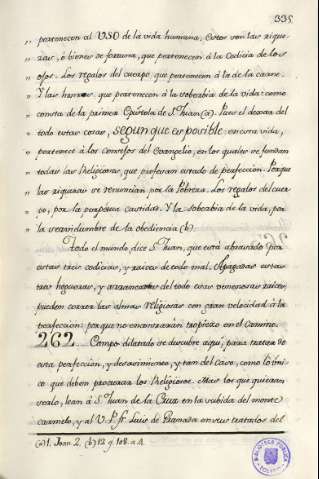 335
„ pertenecen al USO de la vida humana. Estos son las rique-
„ zas, ó bienes de fortuna, que pertenecen à la codicia de los o-
„ jos. Los regalos del cuerpo, que pertenecen à la de la carne.
„ Y las honras, que pertenecen à la soberbia de la vida: como
„ consta de la primera Epistola de S.ⁿ Juan (a). Pues el dexar del
„ todo estas cosas, segun que es posible, en esta vida,
„ pertenece à los Consejos del Evangelio, en los quales se fundan
„ todas las Religiones, que profesan estado de perfeccion. Porque
„ las riquezas se renuncian por la Pobreza. Los regalos del cuer-
„ po, por la perpetua castidad. Y la soberbia de la vida, por
„ la servidumbre de la obediencia (b)
Todo el mundo, dice S.ⁿ Juan, que está abrasado por
estas tres codicias, y raices de todo mal. Apagadas estas
tres hogueras, y arrancadas del todo esas venenosas raices,
pueden correr las almas religiosas con gran velocidad à la
perfeccion: porque no encontrarán tropiezo en el Camino.
262 Campo dilatado se descubre aqui, para tratar de
esta perfeccion, y desasimiento, y tan del caso, como lo úni-
co que deben procurar los Religiosos. Mas los que quieran
verlo, lean à S.ⁿ Juan de la Cruz en la subida del monte
carmelo, y al V. P. fr. Luis de Granada en sus tratados del
(a) 1. Joan 2. (b) 12 q. 108. a 4.
BIBLIOTECA PUBLICA